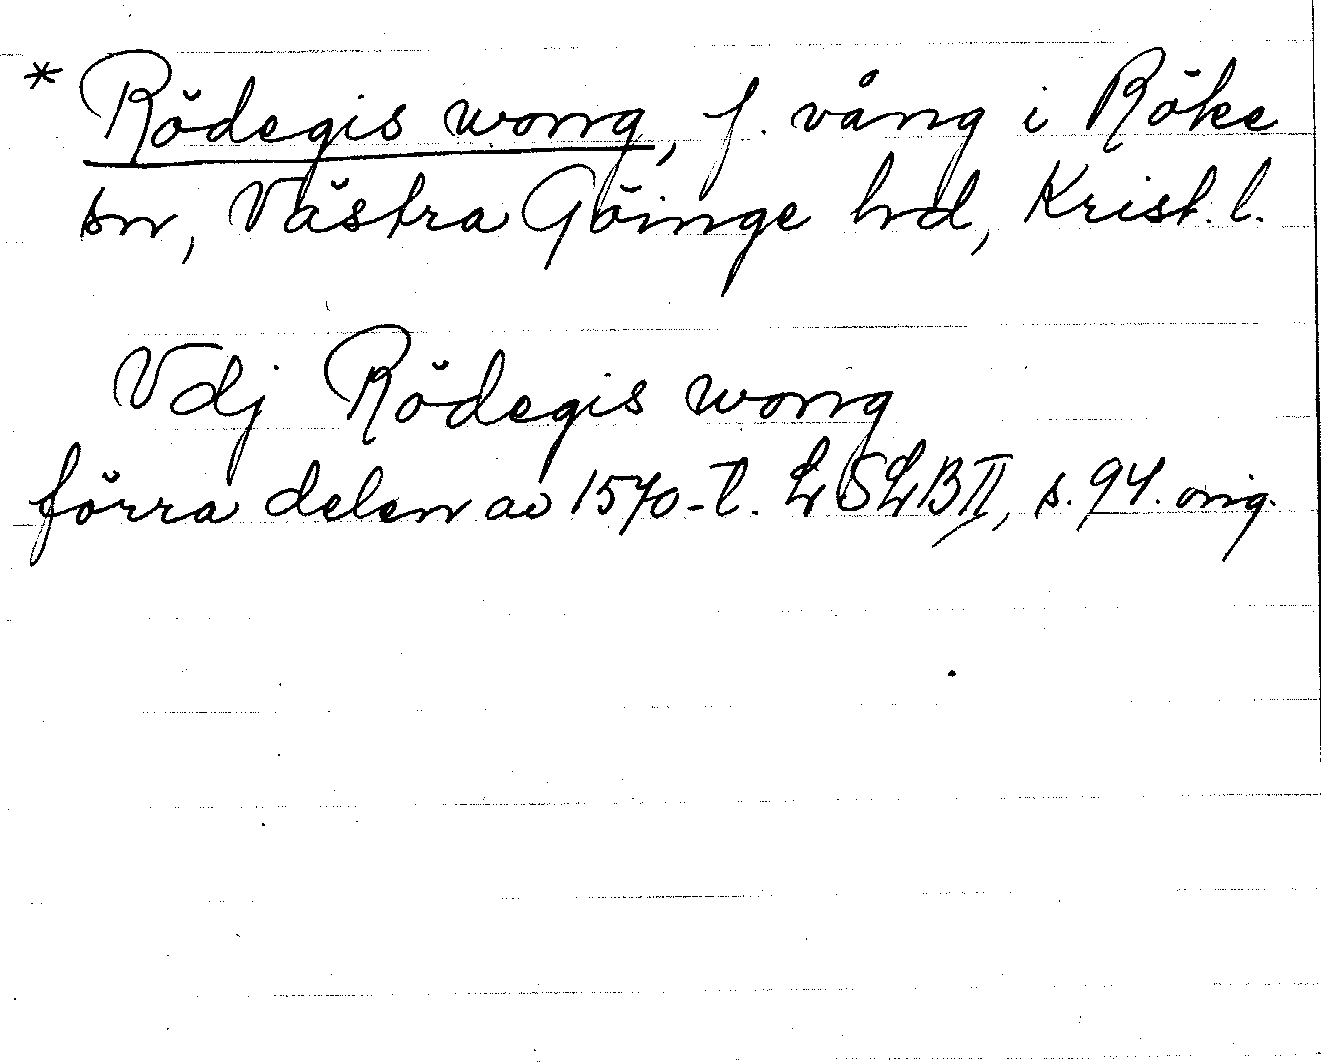 * Rödegis wong, f. vång i Röke
sn, Västra Göinge hd, Krist. l.
Vdj Rödegis wong
förra delen av 1570-t. LSLB II, s. 94. orig.